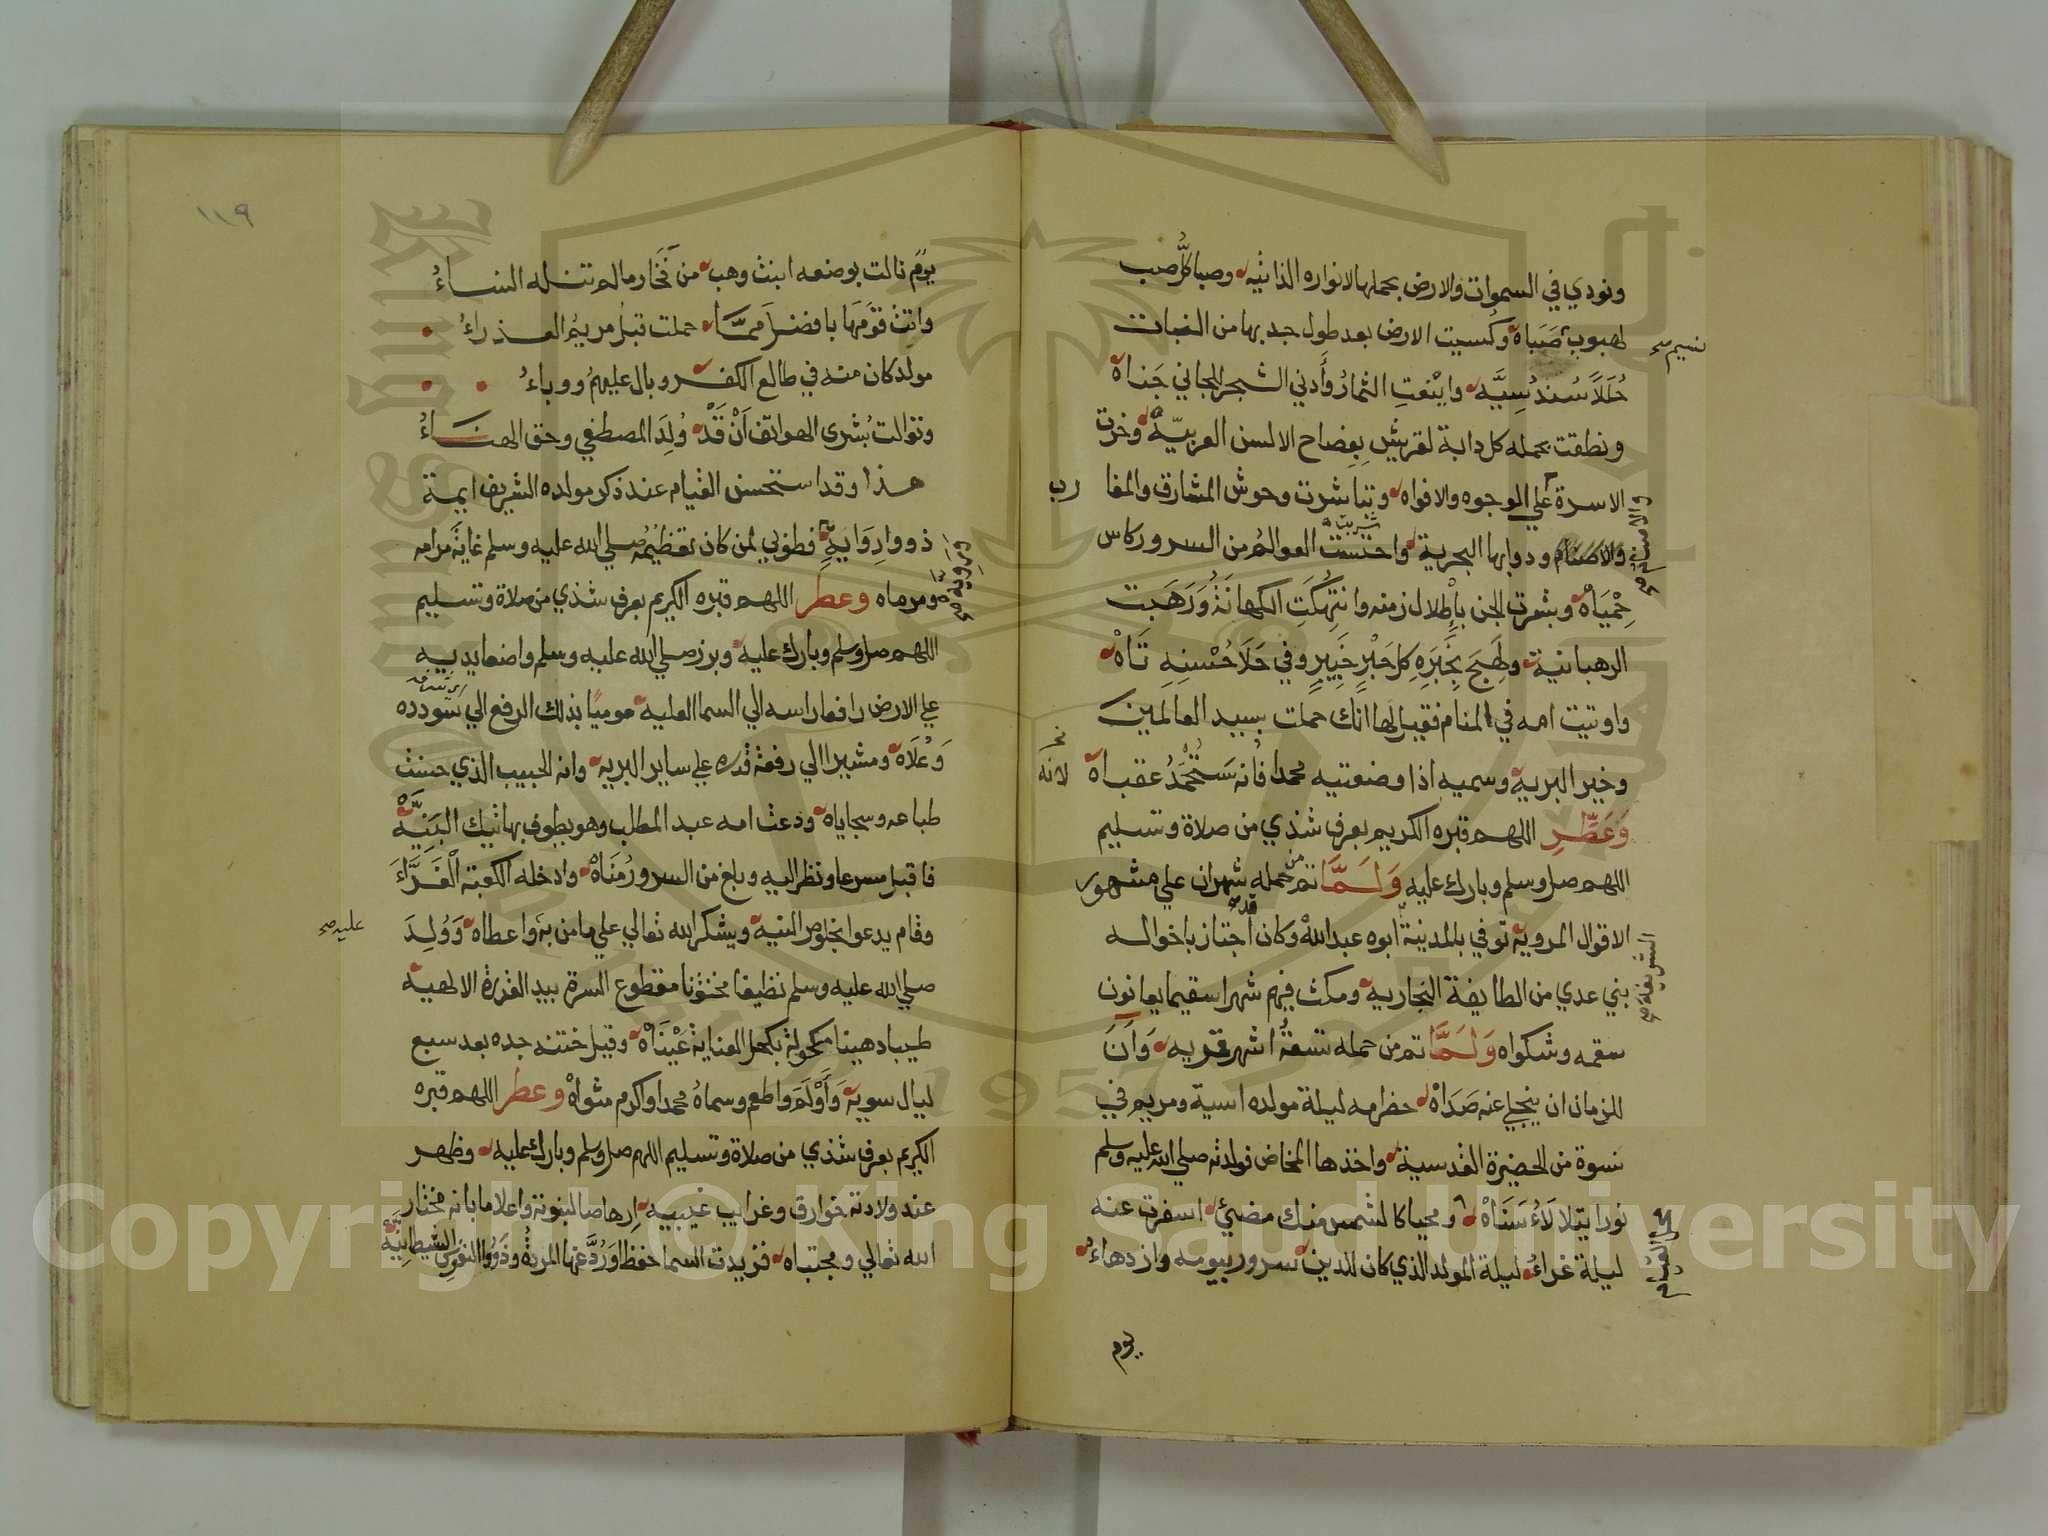 ونودي في السموات والارض بحملها لانواره الذاتيه وصبا كل صب
لهبوب صباه وكسيت الارض بعد طول جدبها من النبات
نسيم صح
حللا سندسيه واينعت الثمار وأدني الشجر للجاني جناه
ونطقت بحمله كل دابة لقريش بفصاح الالسن العربيه وخرت
الاسرة علي الوجوه والافواه وتباشرت وحوش المشارق والمغا
رب
والاصنام ودوابها البحرية واحتست العوالم من السرور كاس
حمياه وبشرت الجن بإطلال زمنه وانتهكت الكهانة ورهبت
الرهبانية ولهج بخبره كل حبر خبير وفي حلا حسنه تاه
واوتيت امه في المنام فقيل لها انك حملت بسيد العالمين
وخير البريه وسميه اذا وضعتيه محمدا فانه ستحمد عقباه
لانه
وعطر اللهم قبره الكريم بعرف شذي من صلاة وتسليم
اللهم صل وسلم وبارك عليه ولما تم من حمله شهران علي مشهور
الاقوال المرويه توفي بالمدينة ابوه عبد الله وكان قد اجتاز باخواله
الشريفة صح
بني عدي من الطايفة النجاريه ومكث فيهم شهرا سقيما يعانون
سقمه وشكواه ولما تم من حمله تسعة اشهر قمريه وآن
للزمان ان ينجلي عنه صداه حضر امه ليلة مولده اسية ومريم في
نسوة من الحضيرة القدسية واخذها المخاض فولدته صلي الله عليه وسلم
نورا يتلالاء سناه ومحيا كالشمس منك مضيئ اسفرت عنه
ليلة غراء ليلة المولد الذي كان للدين سرور بيومه وازدهاء
يوم
١١٩
يوم نالت بوضعه ابنت وهب من فخار مالم تنله النساء
واتت قومها بافضل مما حملت قبل مريم العذراء
مولد كان منه في طالع الكفر وبال عليهم ووباء
وتوالت بشرى الهواتف أن قد ولد المصطفي وحق الهناء
هذا وقد استحسن القيام عند ذكر مولده الشريف ايمة
ذوو ادواية فطوبي لمن كان تعظيمه صلي الله عليه وسلم غاية مرامه
وروية صح
ومرماه وعطر اللهم قبره الكريم بعرف شذي من صلاة وتسليم
اللهم صل وسلم وبارك عليه وبرز صلي الله عليه وسلم واضعا يديه
علي الارض رافعا راسه الي السما العليه موميا بذلك الرفع الي سودده
وعلاه ومشيرا الي رفعة قدره علي ساير البريه وانه الحبيب الذي حسنت
طباعه وسجاياه ودعت امه عبد المطلب وهو يطوف بهاتيك البنيه
فاقبل مسرعا ونظر اليه وبلغ من السرور مناه وادخله الكعبة الغراء
وقام يدعوا بخلوص النيه ويشكر الله تعالي علي ما من به واعطاه وولد
عليه صح
صلي الله عليه وسلم نظيفا مختونا مقطوع السرة بيد القدرة الالهيه
طيبا دهينا مكحولة بكحل العناية عيناه وقيل ختنه جده بعد سبع
ليال سويه وأولم واطعم وسماه محمدا واكرم مثواه وعطر اللهم قبره
الكريم بعرف شذي من صلاة وتسليم اللهم صل وسلم وبارك عليه وظهر
عند ولادته خوارق وغرايب غيبيه ارهاصا لنبوته واعلاما بانه مختار
الله تعالي ومجتباه فزيدت السما حفظا ورد عنها المردة وذووا النفوس الشيطانيه
Copyright © King Saud University
King Saud University
1957